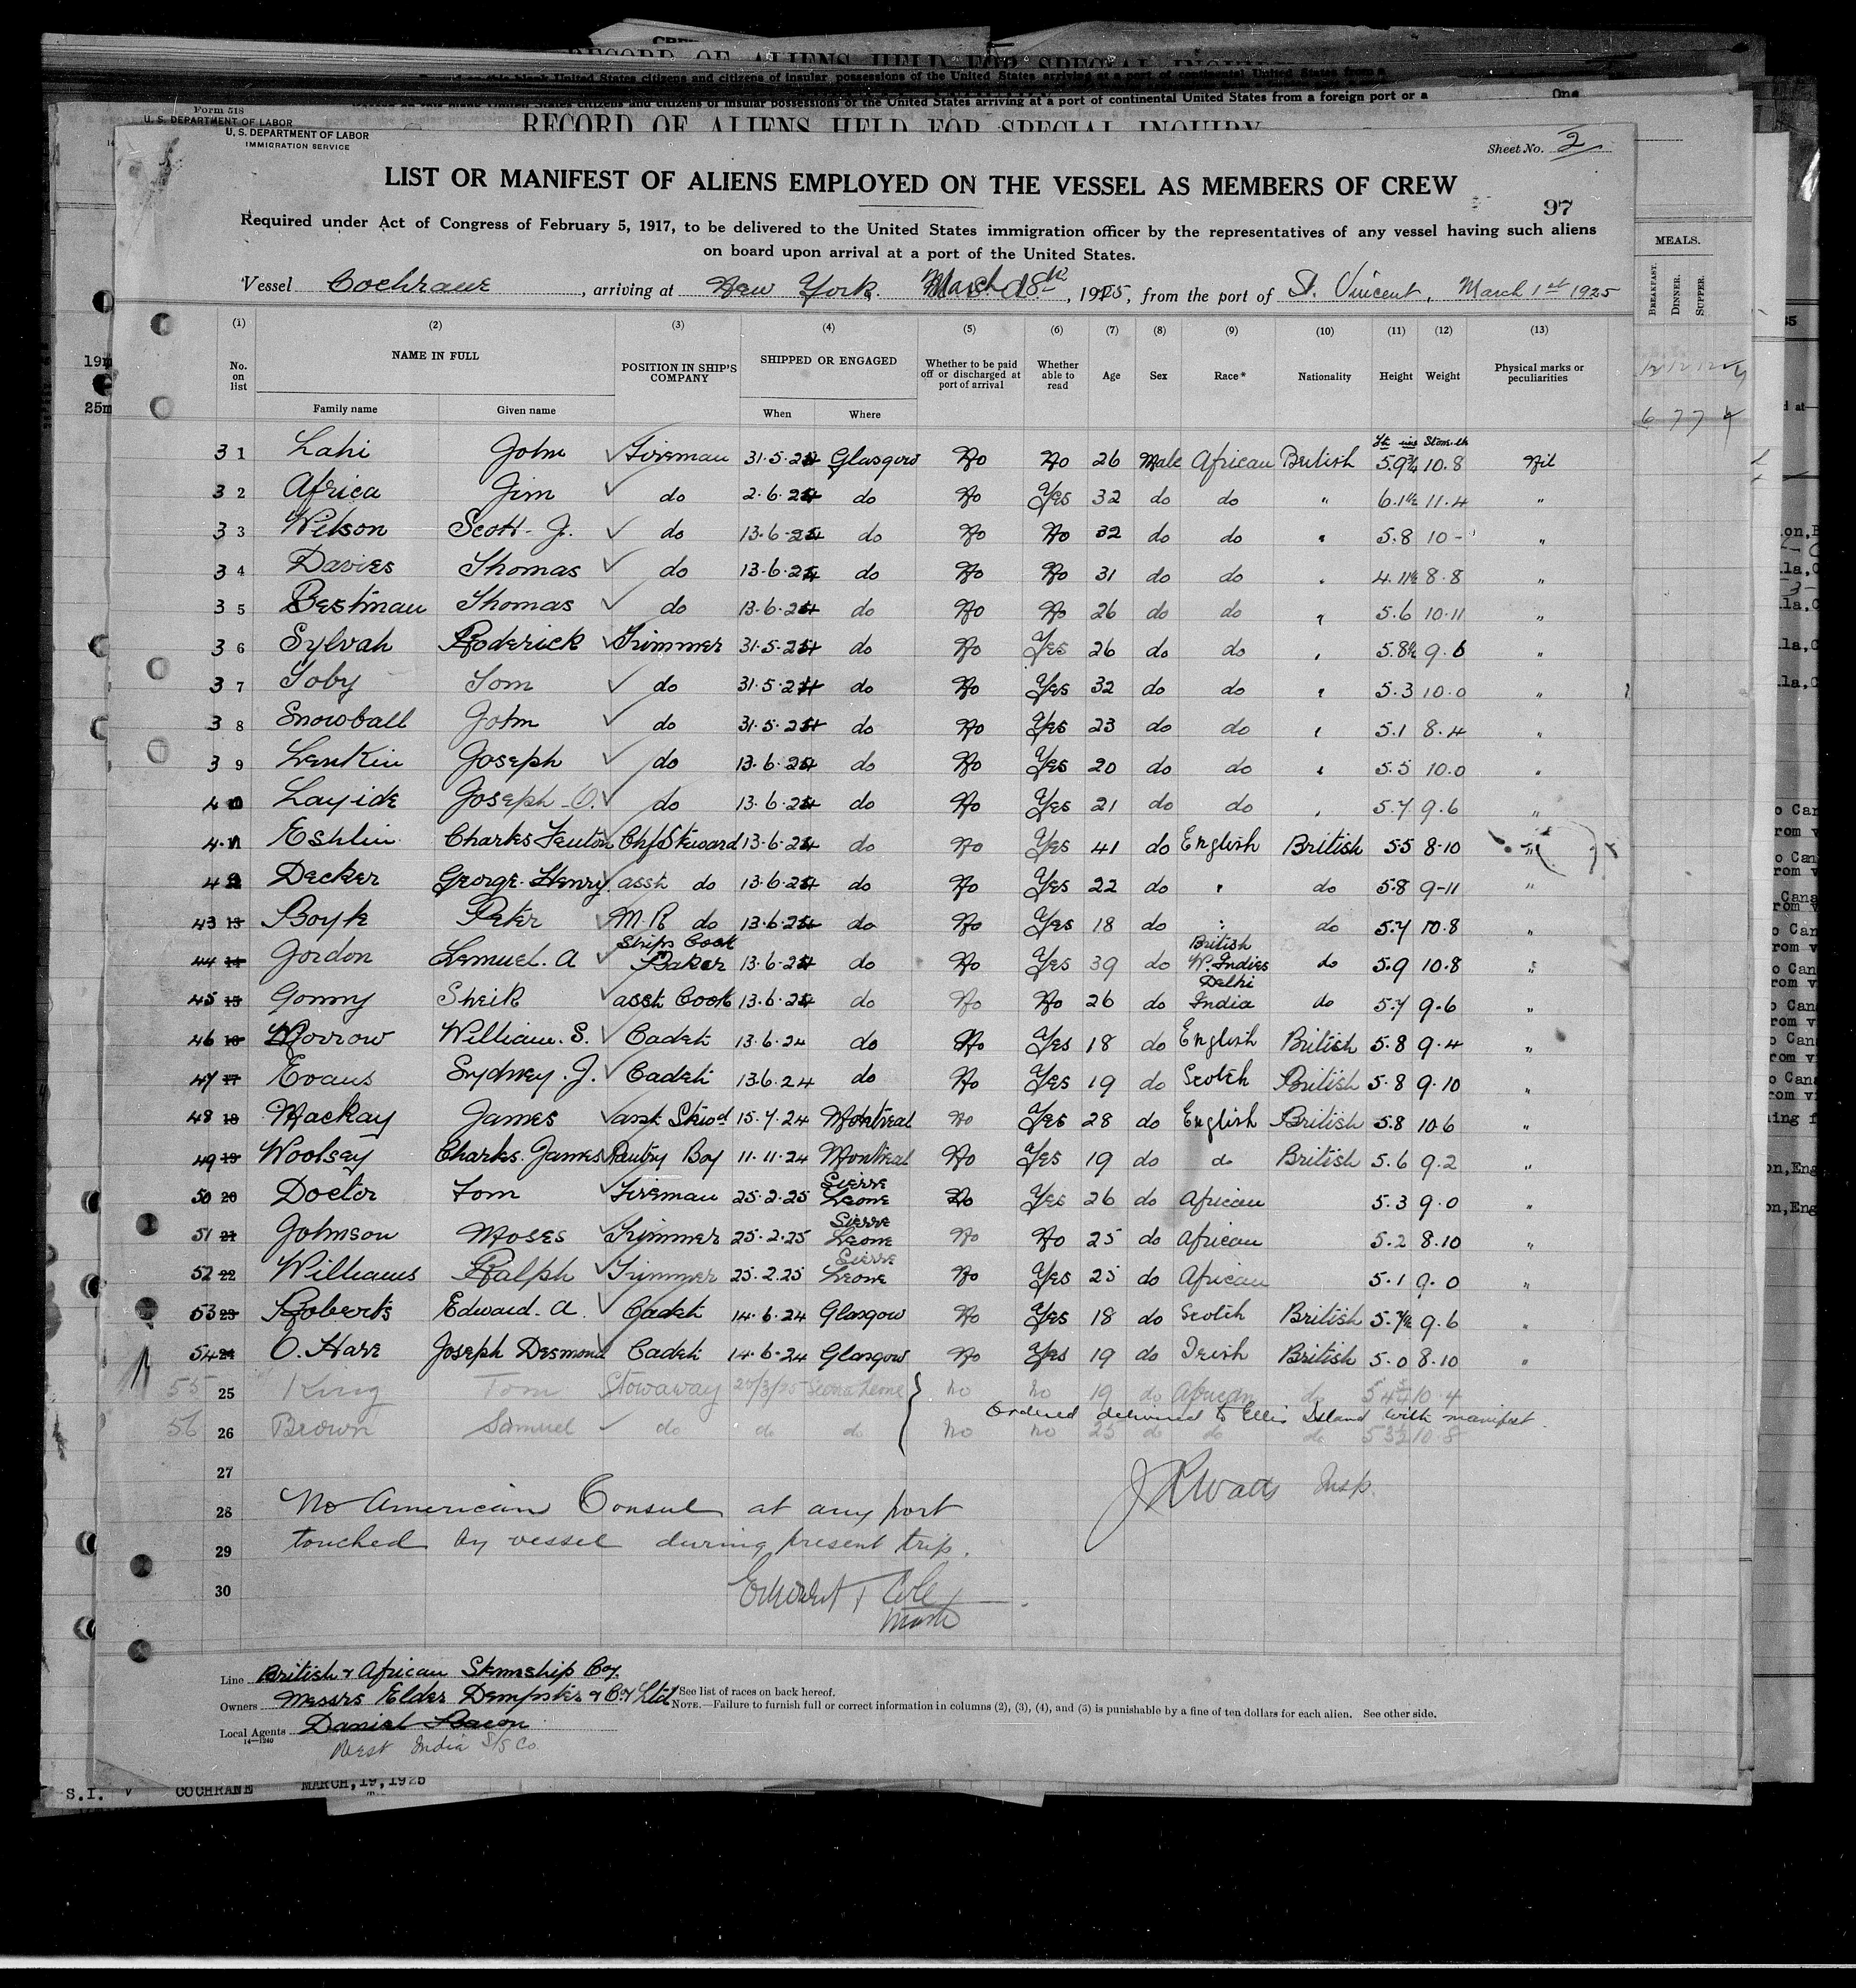 RECORD OF ALIENS HELD FOR SPECIAL INQUIRY
citizens and citizens of insular possessions of the United States arriving at a port of continental United States from a foreign port or a
Form 518
U. S. DEPARTMENT OF LABOR
RECORD OF ALIENS HELD FOR SPECIAL INQUIRY
U. S. DEPARTMENT OF LABOR
IMMIGRATION SERVICE
Sheet No. 2
LIST OR MANIFEST OF ALIENS EMPLOYED ON THE VESSEL AS MEMBERS OF CREW
97
Required under Act of Congress of February 5, 1917, to be delivered to the United States immigration officer by the representatives of any vessel having such aliens
on board upon arrival at a port of the United States.
MEALS.
BREAKFAST. DINNER. SUPPER.
Vessel Cochrane, arriving at New York. March 18th, 1925, from the port of St. Vincent, March 1st 1925
(1) (2) (3) (4) (5) (6) (7) (8) (9) (10) (11) (12) (13)
No. on list NAME IN FULL POSITION IN SHIP'S COMPANY SHIPPED OR ENGAGED Whether to be paid off or discharged at port of arrival Whether able to read Age Sex Race* Nationality Height Weight Physical marks or peculiarities
Family name Given name When Where
31 Lahi John Fireman 31.5.24 Glasgow No No 26 Male African British 5.9¾ 10.8 Nil
32 Africa Jim do 2.6.24 do No Yes 32 do do " 6.1½ 11.4 "
33 Wilson Scott J. do 13.6.24 do No No 32 do do " 5.8 10 - "
34 Davies Thomas do 13.6.24 do No No 31 do do " 4.11½ 8.8 "
35 Bestman Thomas do 13.6.24 do No No 26 do do " 5.6 10.11 "
36 Sylvah Roderick Trimmer 31.5.24 do No Yes 26 do do " 5.8½ 9.6 "
37 Toby Tom do 31.5.24 do No Yes 32 do do " 5.3 10.0 "
38 Snowball John do 31.5.24 do No Yes 23 do do " 5.1 8.4 "
39 Lenkin Joseph do 13.6.24 do No Yes 20 do do " 5.5 10.0 "
40 Layide Joseph O. do 13.6.24 do No Yes 21 do do " 5.7 9.6 "
41 Eshlin Charles Fenton Chf Steward 13.6.24 do No Yes 41 do English British 5.5 8.10 "
42 Decker George Henry asst do 13.6.24 do No Yes 22 do " do 5.8 9-11 "
43 13 Boyle Peter M.R do 13.6.24 do No Yes 18 do " do 5.7 10.8 "
44 14 Gordon Lemuel. A Ships Cook Baker 13.6.24 do No Yes 39 do British W. Indies do 5.9 10.8 "
45 15 Gonny Sheik asst Cook 13.6.24 do No No 26 do Delhi India do 5.7 9.6 "
46 16 Morrow William. S. Cadet 13.6.24 do No Yes 18 do English British 5.8 9.4 "
47 17 Evans Sydney. J. Cadet 13.6.24 do No Yes 19 do Scotch British 5.8 9.10 "
48 18 Mackay James asst Stewd 15.7.24 Montreal No Yes 28 do English British 5.8 10.6 "
49 19 Woolsey Charles. James Pantry Boy 11.11.24 Montreal No Yes 19 do do British 5.6 9.2 "
50 20 Doctor Tom Fireman 25.2.25 Sierre Leone No Yes 26 do African 5.3 9.0 "
51 21 Johnson Moses Trimmer 25.2.25 Sierre Leone No No 25 do African 5.2 8.10 "
52 22 Williams Ralph Trimmer 25.2.25 Sierre Leone No Yes 25 do African 5.1 9.0 "
53 23 Roberts Edward. A. Cadet 14.6.24 Glasgow No Yes 18 do Scotch British 5.7½ 9.6 "
54 24 O. Hare Joseph Desmond Cadet 14.6.24 Glasgow No Yes 19 do Irish British 5.0 8.10 "
55 25 King Tom Stowaway 25/3/25 Sierra Leone No No 19 do African do 5 4½ 10.4
Ordered delivered to Ellis Island with manifest.
56 26 Brown Samuel do do do No No 25 do do do 5 3½ 10.8
27
J R Watts Insp.
28 No American Consul at any port
29 touched by vessel during present trip.
30
Line British & African Steamship Coy.
Owners Messrs Elder Dempster & Coy Ltd
Local Agents Daniel Bacon
West India S/S Co.
14—1240
* See list of races on back hereof.
NOTE.—Failure to furnish full or correct information in columns (2), (3), (4), and (5) is punishable by a fine of ten dollars for each alien. See other side.
S.I. COCHRANE MARCH, 19, 1925